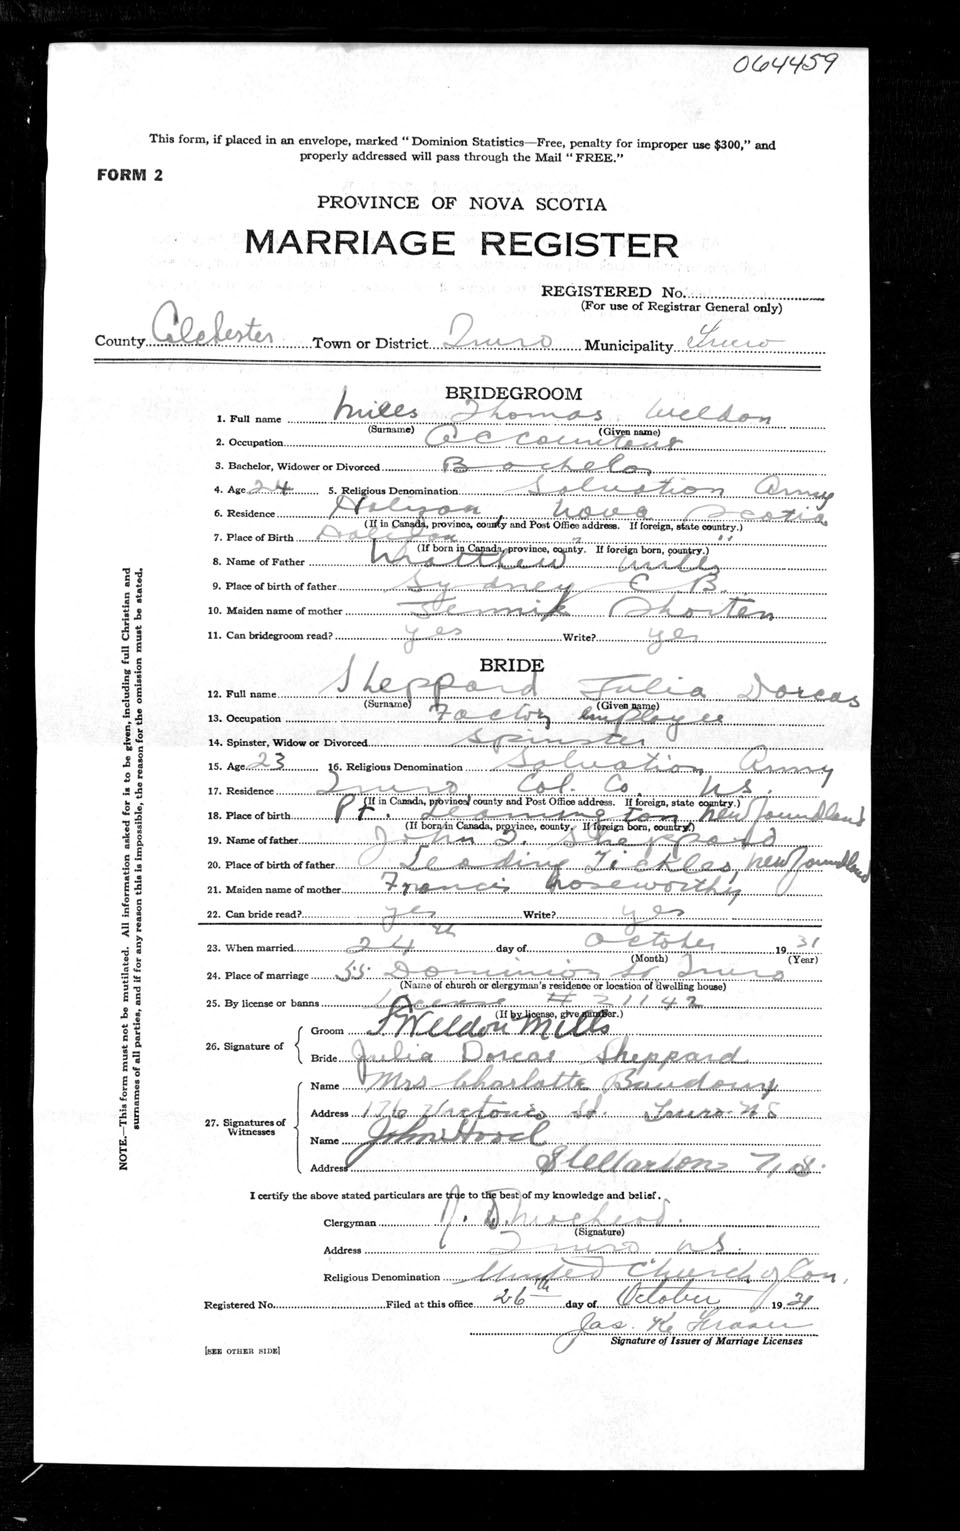 064459
This form, if placed in an envelope, marked "Dominion Statistics—Free, penalty for improper use $300," and
properly addressed will pass through the Mail "FREE."
FORM 2
PROVINCE OF NOVA SCOTIA
MARRIAGE REGISTER
REGISTERED No.
(For use of Registrar General only)
County Colchester Town or District Truro Municipality Truro
BRIDEGROOM
1. Full name Mills Thomas Weldon
(Surname) (Given name)
2. Occupation Accountant
3. Bachelor, Widower or Divorced Bachelor
4. Age 24 5. Religious Denomination Salvation Army
6. Residence Halifax Nova Scotia
(If in Canada, province, county and Post Office address. If foreign, state country.)
7. Place of Birth Halifax " "
(If born in Canada, province, county. If foreign born, country.)
8. Name of Father Matthew Mills
9. Place of birth of father Sydney C B
10. Maiden name of mother Shorten
11. Can bridegroom read? yes Write? yes
BRIDE
12. Full name Sheppard Julia Dorcas
(Surname) (Given name)
13. Occupation Factory employee
14. Spinster, Widow or Divorced Spinster
15. Age 23 16. Religious Denomination Salvation Army
17. Residence Truro Col. Co. N.S.
(If in Canada, province, county and Post Office address. If foreign, state country.)
18. Place of birth Pt. Leamington Newfoundland
(If born in Canada, province, county. If foreign born, country.)
19. Name of father John Sheppard
20. Place of birth of father Leading Tickles, Newfoundland
21. Maiden name of mother Francis Noseworthy
22. Can bride read? yes Write? yes
23. When married 24th day of October 1931
(Month) (Year)
24. Place of marriage 55 Dominion St Truro
(Name of church or clergyman's residence or location of dwelling house)
25. By license or banns License # 21142
(If by license, give number.)
26. Signature of
Groom T Weldon Mills
Bride Julia Dorcas Sheppard
27. Signatures of Witnesses
Name Mrs Charlotte
Address 176 Victoria St. Truro N S
Name John Hood
Address Stellarton N.S.
I certify the above stated particulars are true to the best of my knowledge and belief.
Clergyman
(Signature)
Address Truro N.S.
Religious Denomination United Church of Can.
Registered No. Filed at this office 26th day of October 1931
Jas. K. Fraser
Signature of Issuer of Marriage Licenses
[SEE OTHER SIDE]
NOTE.—This form must not be mutilated. All information asked for is to be given, including full Christian and
surnames of all parties, and if for any reason this is impossible, the reason for the omission must be stated.